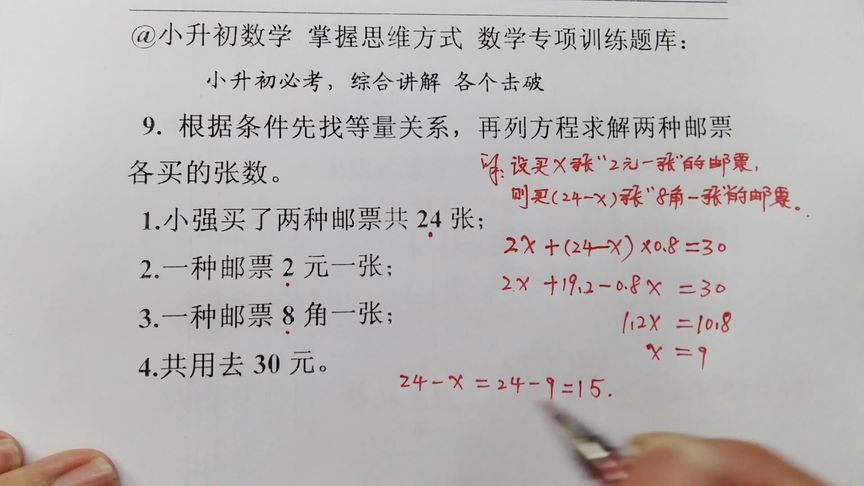 @小升初数学 掌握思维方式 数学专项训练题库：
小升初必考，综合讲解 各个击破
9. 根据条件先找等量关系，再列方程求解两种邮票
各买的张数。
1.小强买了两种邮票共 24 张；
2.一种邮票 2 元一张；
3.一种邮票 8 角一张；
4.共用去 30 元。
解：设买x张“2元一张”的邮票，
则买(24-x)张“8角一张”的邮票。
2x+(24-x)×0.8=30
2x+19.2-0.8x=30
1.2x=10.8
x=9
24-x=24-9=15.